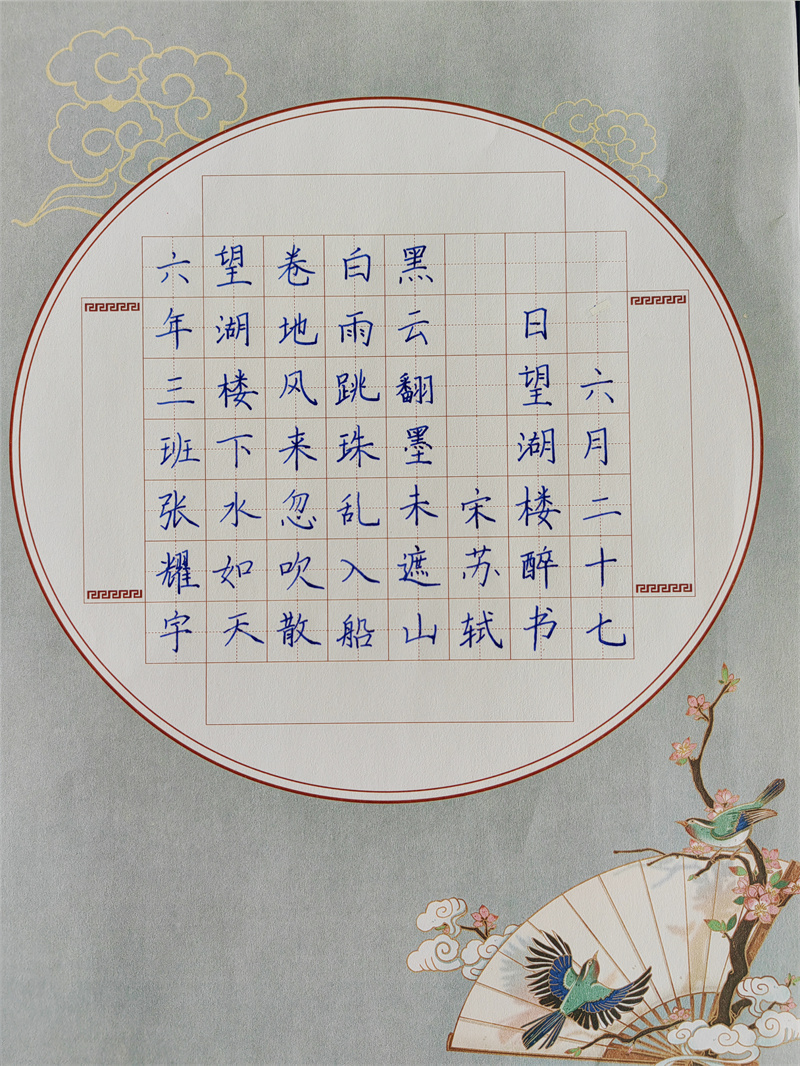 六月二十七
日望湖楼醉书
宋苏轼
黑云翻墨未遮山
白雨跳珠乱入船
卷地风来忽吹散
望湖楼下水如天
六年三班张耀宇